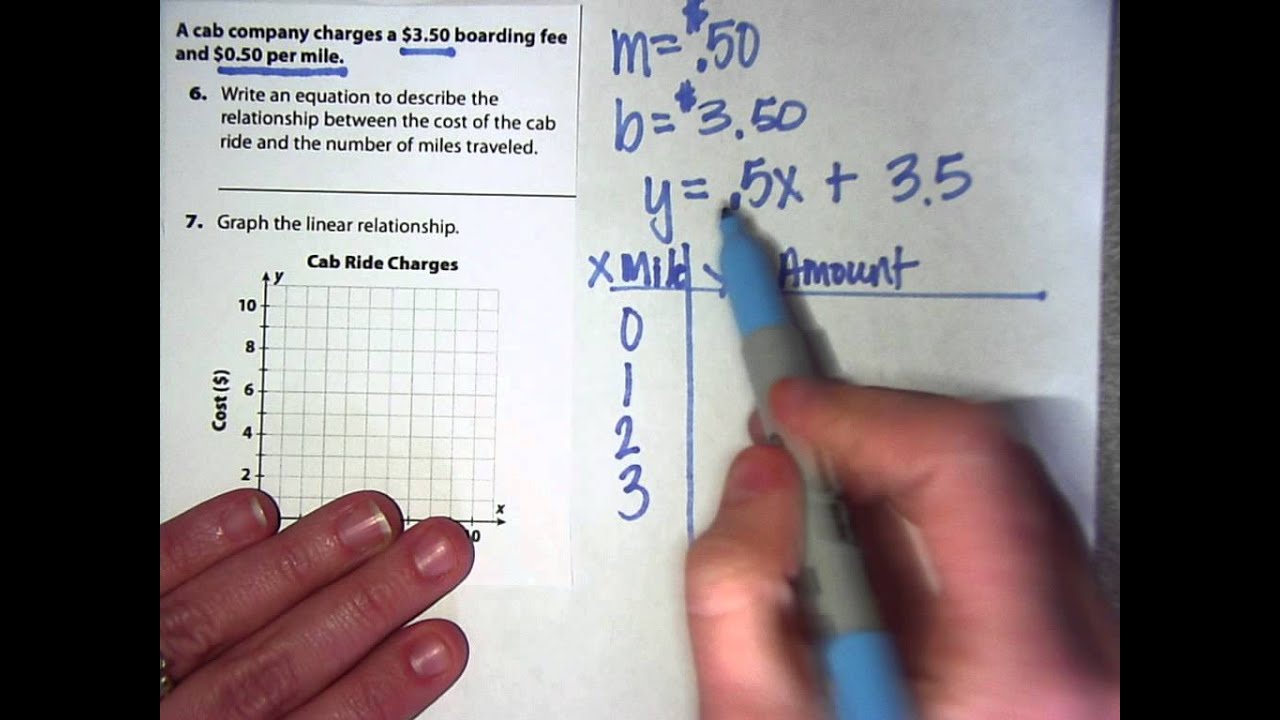 A cab company charges a $3.50 boarding fee
and $0.50 per mile.
6. Write an equation to describe the
relationship between the cost of the cab
ride and the number of miles traveled.
7. Graph the linear relationship.
Cab Ride Charges
y
10
8
6
4
2
Cost ($)
x
m= $.50
b= $3.50
y = .5x + 3.5
X Amount
0
1
2
3